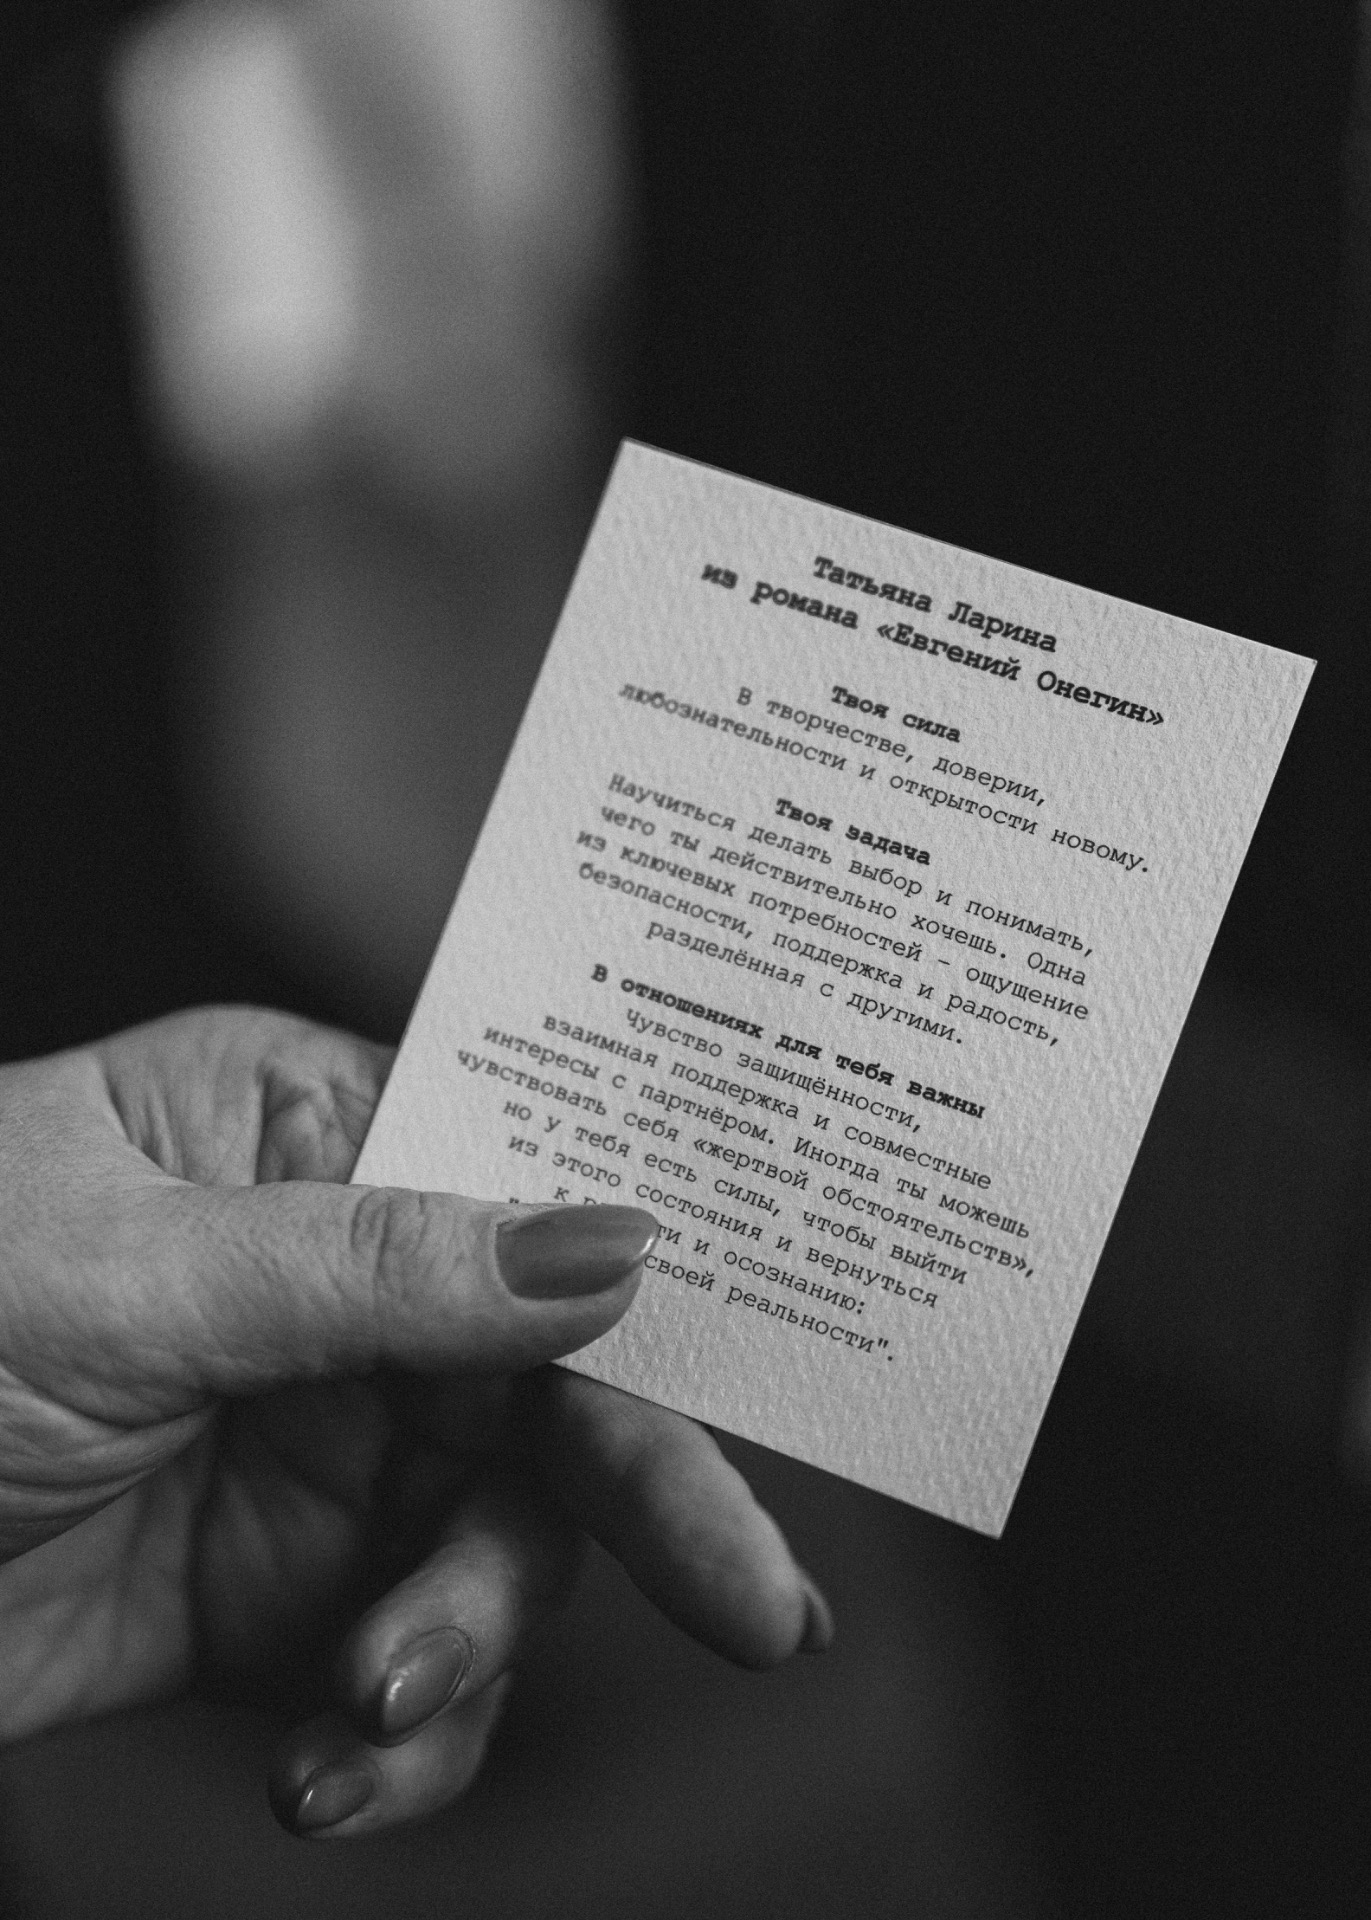 Татьяна Ларина
из романа «Евгений Онегин»
Твоя сила
В творчестве, доверии,
любознательности и открытости новому.
Твоя задача
Научиться делать выбор и понимать,
чего ты действительно хочешь. Одна
из ключевых потребностей – ощущение
безопасности, поддержка и радость,
разделённая с другими.
В отношениях для тебя важны
Чувство защищённости,
взаимная поддержка и совместные
интересы с партнёром. Иногда ты можешь
чувствовать себя «жертвой обстоятельств»,
но у тебя есть силы, чтобы выйти
из этого состояния и вернуться
к и осознанию:
своей реальности".